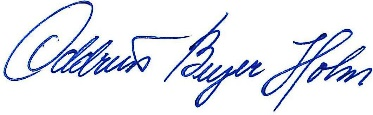 Oddrun Beyer Holm